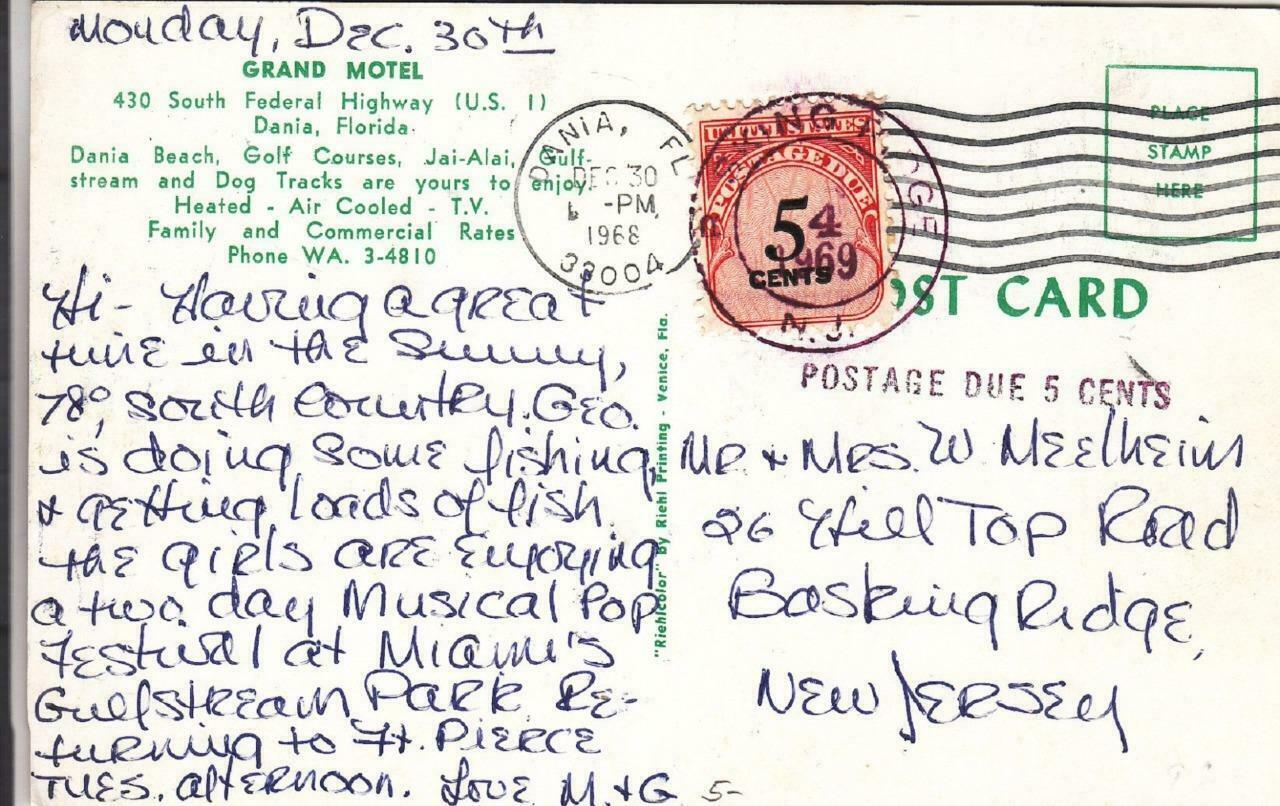 Monday, Dec. 30th
GRAND MOTEL
430 South Federal Highway (U.S. 1)
Dania, Florida
Dania Beach, Golf Courses, Jai-Alai, Gulf-
stream and Dog Tracks are yours to enjoy.
Heated - Air Cooled - T.V.
Family and Commercial Rates
Phone WA. 3-4810
Hi - Having a great
time in the Sunny,
78°, South Country. Geo.
is doing some fishing,
& getting loads of fish.
The girls are enjoying
a two day Musical Pop
Festival at Miami's
Gulfstream Park. Re-
turning to Ft. Pierce
Tues. afternoon. Love M. & G
5-
"Riehlcolor" by Riehl Printing - Venice, Fla.
DANIA, FL
DEC 30
-PM
1968
33004
UNITED STATES
POSTAGE DUE
5
CENTS
BASKING RIDGE
4
1969
N.J.
PLACE
STAMP
HERE
POST CARD
POSTAGE DUE 5 CENTS
Mr. & Mrs. W Meelheim
26 Hill Top Road
Basking Ridge,
New Jersey